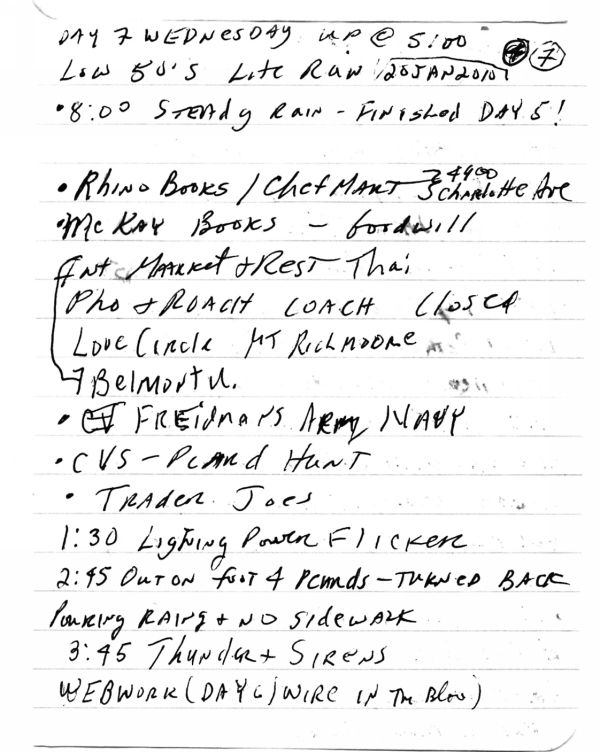 DAY 7 WEDNESDAY UP @ 5:00 7
LOW 50'S LITE RAIN 20JAN2010
• 8:00 STEADY RAIN - FINISHED DAY 5!
• RHINO BOOKS / CHEF MART 4900 CHARLOTTE AVE
• MCKAY BOOKS - GOODWILL
INT MARKET + REST THAI
PHO + ROACH COACH CLOSED
LOVE CIRCLE MT RICHMOORE
BELMONT U.
• FREIDMANS ARMY NAVY
• CVS - PCARD HUNT
• TRADER JOES
1:30 LIGHTNING POWER FLICKER
2:45 OUT ON FOOT 4 PCARDS - TURNED BACK
POURING RAING + NO SIDEWALK
3:45 THUNDER + SIRENS
WEBWORK (DAY 6) WIRE IN THE BLOOD)